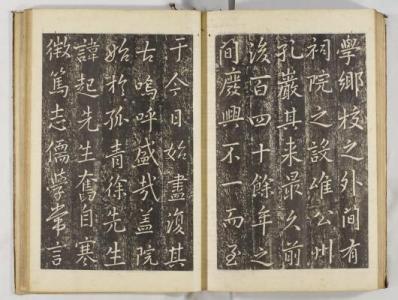 學鄉校之外間有
祠院之設雄公州
孔巖其来最久前
後百四十餘年之
間廢興不一而至
于今日始盡復其
古嗚呼盛哉盖院
始於孤青徐先生
諱起先生奮自寒
微篤志儒學常言